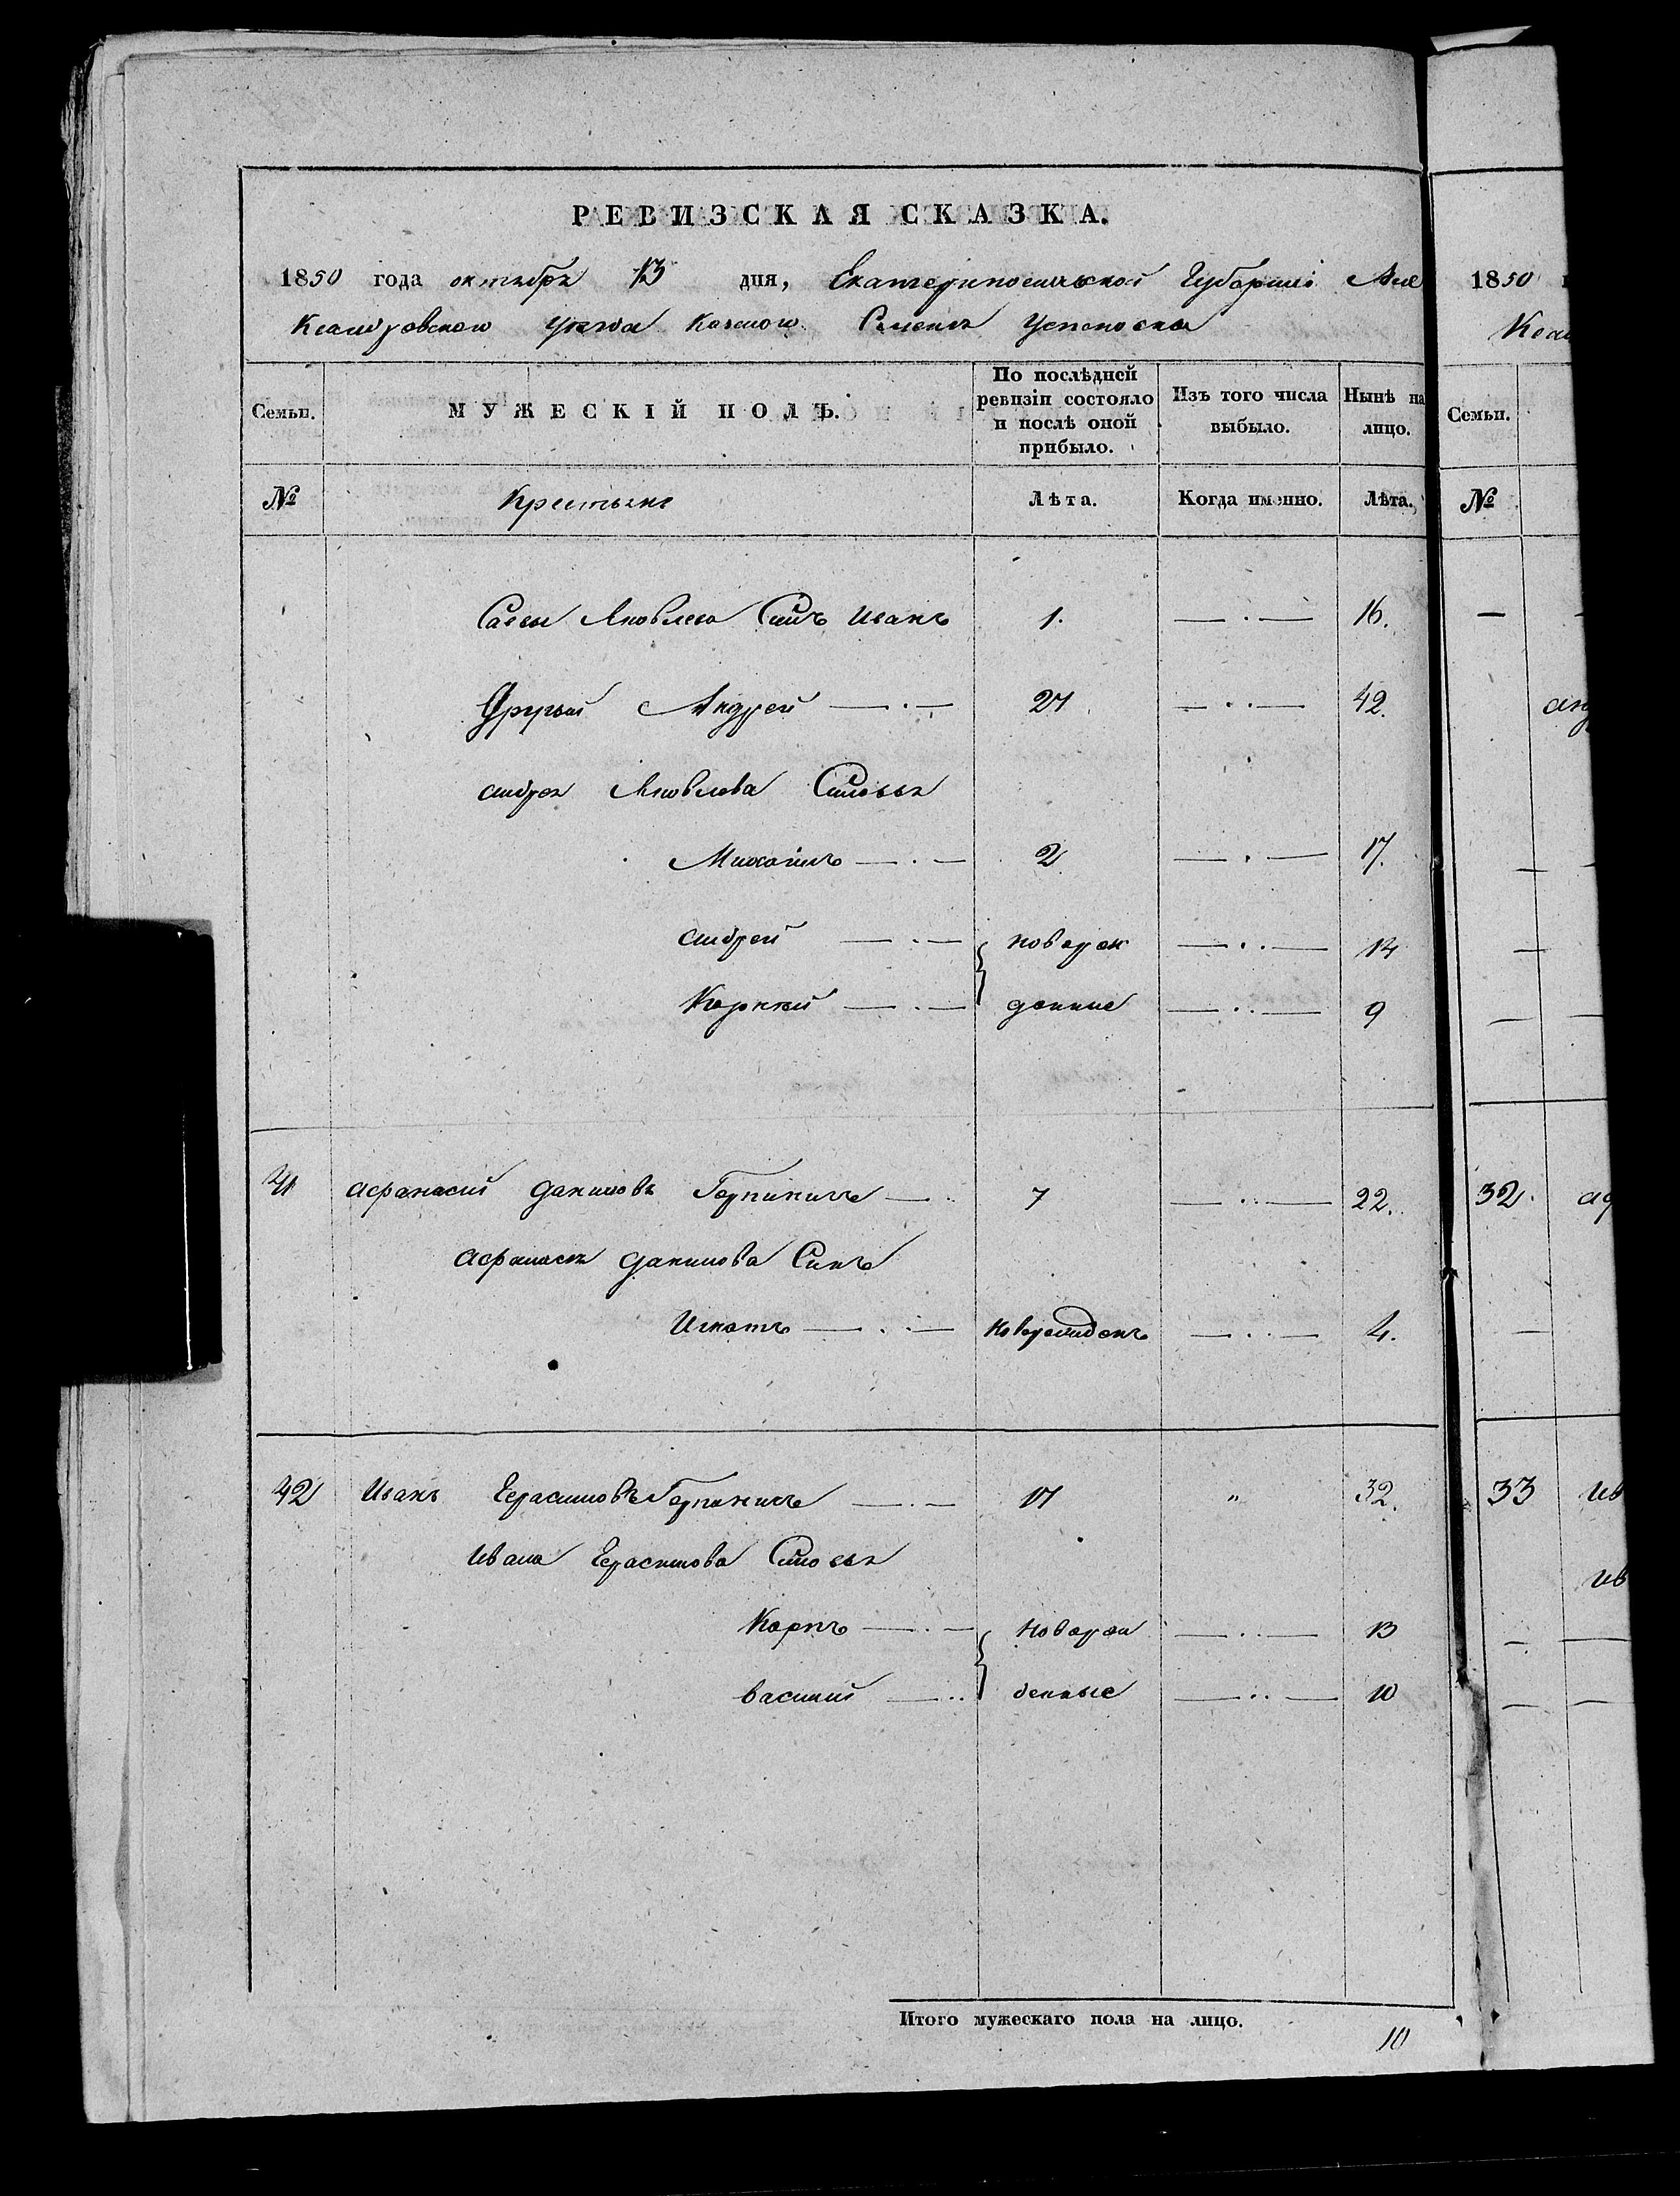 РЕВИЗСКАЯ СКАЗКА.
1850 года октября 13 дня, Екатеринославской Губернии Але
ксандровского уезда Казенного Селения Успеновка
Семьи. МУЖЕСКІЙ ПОЛЪ. По послѣдней ревизіи состояло и послѣ оной прибыло. Изъ того числа выбыло. Нынѣ на лицо.
№ Крестьяне Лѣта. Когда именно. Лѣта.
Савы Яковлева Сынъ Иванъ 1. 16.
Другий Андрей 27 42.
андрея Яковлева Сыновья
Михаилъ 2 17.
андрей новорож 14
Корний денные 9
41 афанасий даниловъ 7 22.
афанасия данилова Сынъ
Игнатъ Новорожденъ 4.
42 Иванъ Герасимовъ 17 " 32.
Ивана Герасимова Сыновья
Карпъ Новорож 13
василий денные 10
Итого мужескаго пола на лицо. 10
1850
Ксан
Семьи.
№
анд
32. аф
33 ив
ив